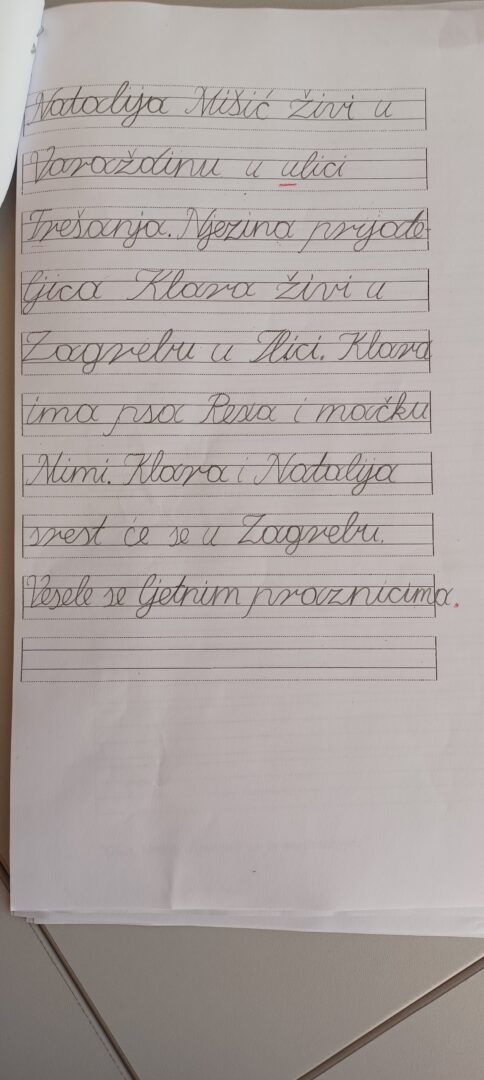 Natalija Mišić živi u
Varaždinu u ulici
Trešanja. Njezina prijate-
ljica Klara živi u
Zagrebu u Ilici. Klara
ima psa Rexa i mačku
Mimi. Klara i Natalija
srest će se u Zagrebu.
Vesele se ljetnim praznicima.